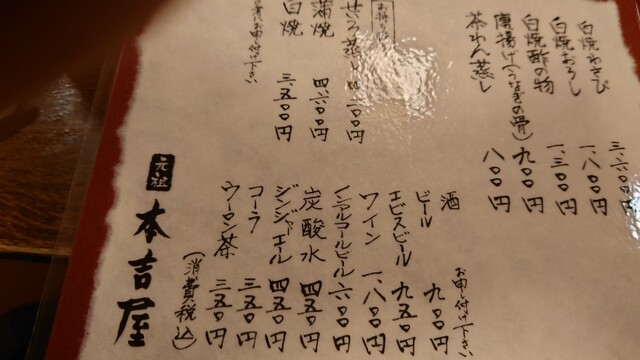 白焼わさび 三、六〇〇円
白焼おろし 一、八〇〇円
白焼酢の物 一、三〇〇円
唐揚げ(うなぎの骨) 九〇〇円
茶わん蒸し 八〇〇円
お持ち
蒸し
蒲焼 四、六〇〇円
白焼 三、五〇〇円
お申し付け下さい
酒 お申し付け下さい
ビール 九〇〇円
エビスビール 九五〇円
ワイン 一、八〇〇円
ノンアルコールビール 六〇〇円
炭酸水 四五〇円
ジンジャエール 四五〇円
コーラ 三五〇円
ウーロン茶 三五〇円
(消費税込)
元祖
本吉屋